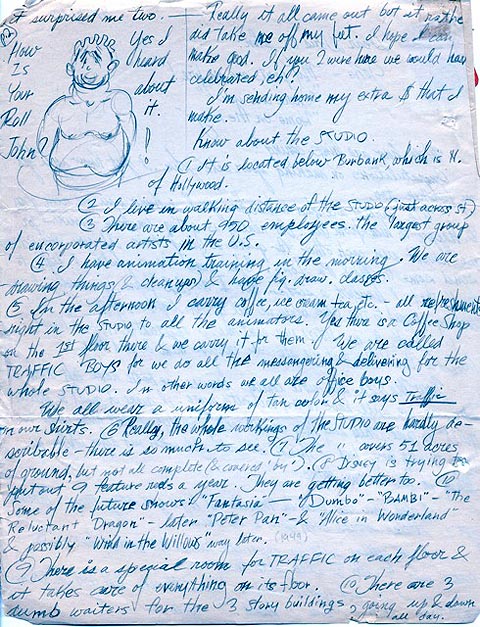 it surprised me two. — Really it all came out but it
did take me off my feet. I hope I can
make good. If you 2 were here we would have
celebrated, eh?
I'm sending home my extra $ that I
make.
Know about the STUDIO.
P2
How
Is
Your
Roll
John?
Yes I
heard
about
it.
!
① It is located below Burbank, which is N.
of Hollywood.
② I live in walking distance of the STUDIO (just across st)
③ There are about 950 employees. The largest group
of encorporated artists in the U.S.
④ I have animation training in the morning. We are
drawing things (& cleanups) & have fig. draw. classes.
⑤ In the afternoon I carry coffee, ice cream tea, etc. - all refreshments
right in the STUDIO to all the animators. Yes there is a Coffee Shop
on the 1st floor there & we carry it for them. We are called
TRAFFIC BOYS for we do all the messengering & delivering for the
whole STUDIO. In other words we all are office boys.
We all wear a uniform of tan color & it says Traffic
on our shirts. ⑥ Really, the whole workings of the STUDIO are hardly de-
scribable - there is so much to see. ⑦ The " covers 51 acres
of ground, but not all complete (& covered 'by'). ⑧ Disney is trying to
put out 9 feature reels a year. They are getting better to. ⑩
Some of the future shows - "Fantasia" - "Dumbo" - "BAMBI" - "The
Reluctant Dragon" - later "Peter Pan" - & "Alice in Wonderland"
& possibly "Wind in the Willows" way later. (1949)
⑨ There is a special room for TRAFFIC on each floor &
it takes care of everything on its floor. ⑩ There are 3
dumb waiters for the 3 story buildings going up & down
all day.